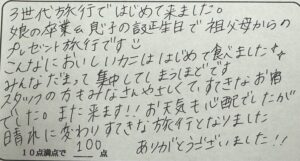 3世代旅行ではじめて来ました。
娘の卒業&息子の誕生日で祖父母からの
プレゼント旅行です☺
こんなにおいしいカニははじめて食べました♡♡
みんなだまって集中してしまうほどです
スタッフの方もみなさんやさしくて、すてきなお宿
でした。また来ます!!お天気も心配でしたが
晴れに変わりすてきな旅行となりました
10点満点で 100 点 ありがとうございました!!